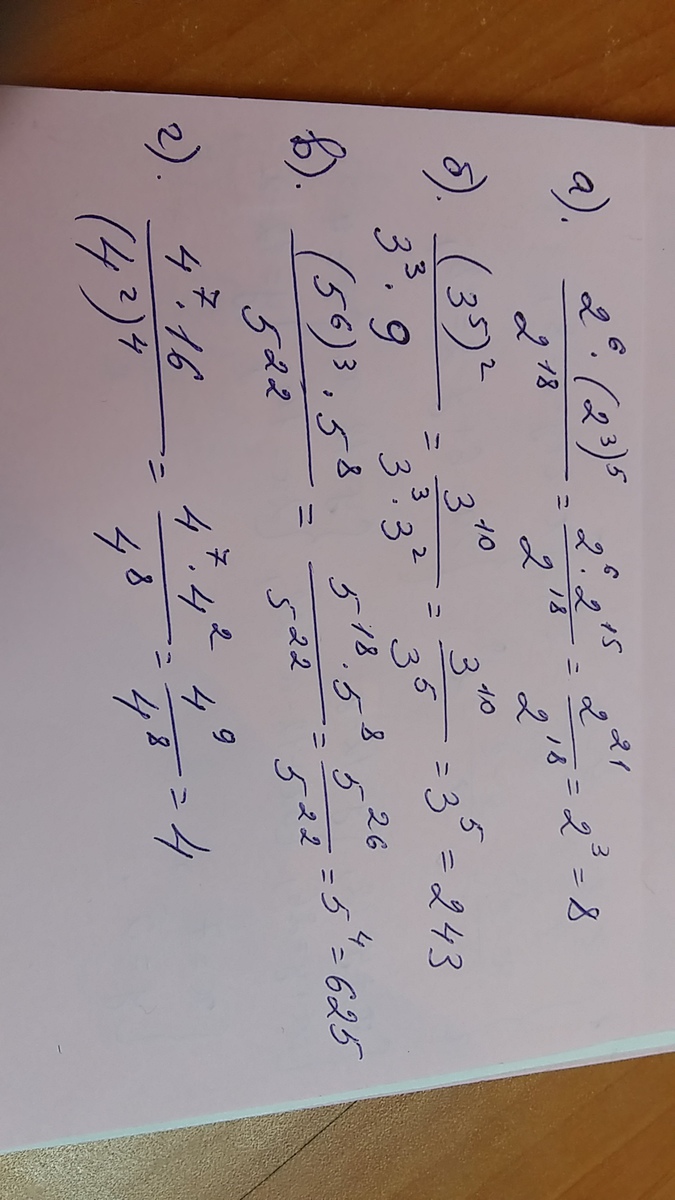 а). (2⁶ · (2³)⁵) / 2¹⁸ = (2⁶ · 2¹⁵) / 2¹⁸ = 2²¹ / 2¹⁸ = 2³ = 8
б). (3⁵)² / (3³ · 9) = 3¹⁰ / (3³ · 3²) = 3¹⁰ / 3⁵ = 3⁵ = 243
в). ((5⁶)³ · 5⁸) / 5²² = (5¹⁸ · 5⁸) / 5²² = 5²⁶ / 5²² = 5⁴ = 625
г). (4⁷ · 16) / (4²)⁴ = (4⁷ · 4²) / 4⁸ = 4⁹ / 4⁸ = 4